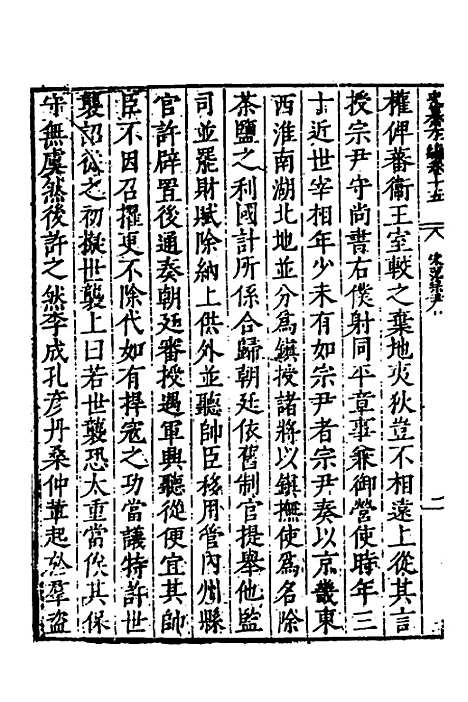 權俾蕃衛王室較之棄地夷狄豈不相遠上從其言
授宗尹守尚書右僕射同平章事兼御營使時年三
十近世宰相年少未有如宗尹者宗尹奏以京畿東
西淮南湖北地並分爲鎮授諸將以鎮撫使爲名除
茶鹽之利國計所係合歸朝廷依舊制官提舉他監
司並罷財賦除納上供外並聽帥臣移用管內州縣
官許辟置後通奏朝廷審授遇軍興聽從便宜其帥
臣不因召擢更不除代如有捍寇之功當議特許世
襲初從之初擬世襲上曰若世襲恐太重當俟其保
守無虞然後許之然李成孔彥丹桑仲輩起於羣盜